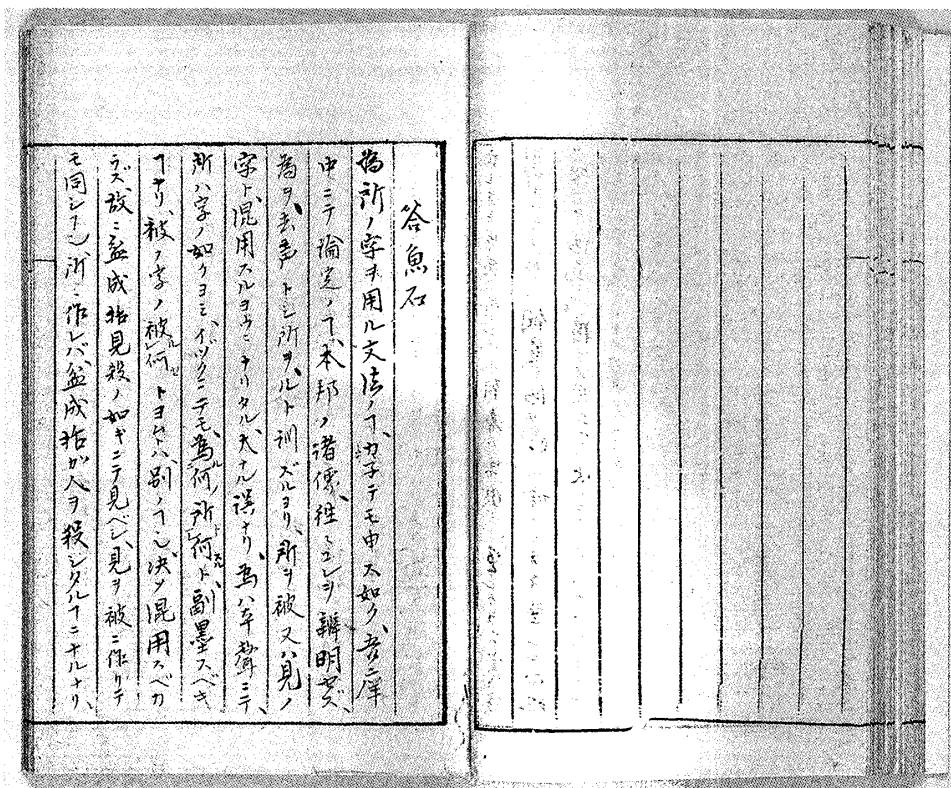 答魚石
為所ノ字ヲ用ル文法ノヿ、カ子テモ申ス如ク、吾二岸
中ニテ論定ノヿ、本邦ノ諸儒、往々コレヲ辨明セズ、
為ヲ、去声トシ所ヲ、ルト訓ズルヨリ、所ヲ被又ハ見ノ
字ト、混用スルヨウニナリタル、大ナル誤ナリ、為ハ平聲ニテ、
所ハ字ノ如クヨミ、イツクニテモ、為何ノ所何ト、副墨スベキ
ヿナリ、被ノ字ノ被何トヨムトハ、別ノヿ也、決シテ混用スベカ
ラズ、故ニ盆成括見殺ノ如キニテ見ベシ、見ヲ被ニ作リテ
モ同シヿ也、所ニ作レバ、盆成括ガ人ヲ殺シタルヿニナルナリ、